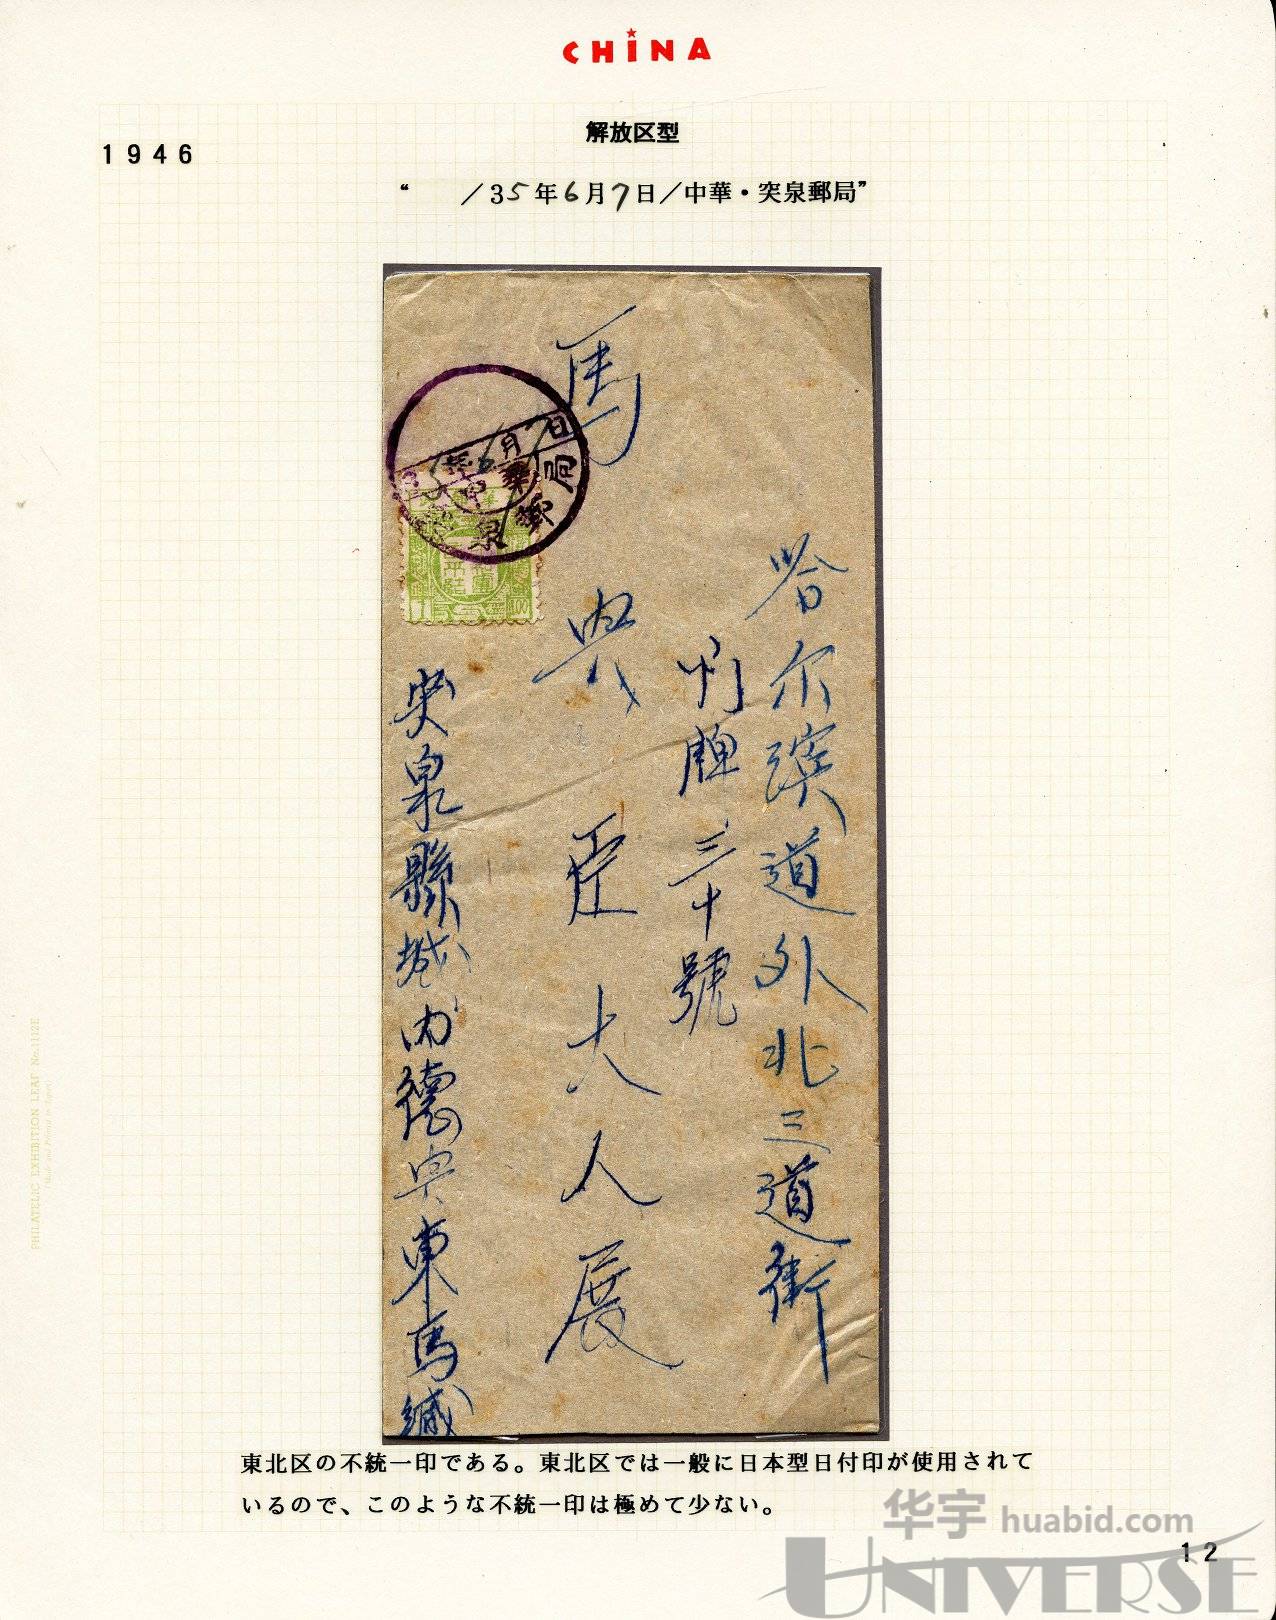 CHINA
解放区型
1946
“　　/35年6月7日/中華・突泉郵局”
哈尔濱道外北三道街
門牌三十號
馬
大人展
突泉縣城内德央東馬緘
年6月7日
中華
泉郵局
東北区の不統一印である。東北区では一般に日本型日付印が使用されて
いるので、このような不統一印は極めて少ない。
PHILATELIC EXHIBITION LEAF No.1112E
(Made and Printed in Japan)
华宇 huabid.com
12
UNIVERSE